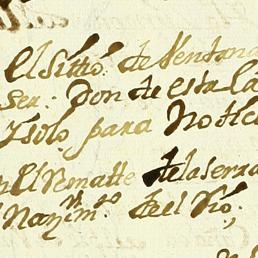 El Sittio de Ventana
ser: Donde esta la
Y solo para Notic
en El Rematte de la serra
l Nazimto del Rio,